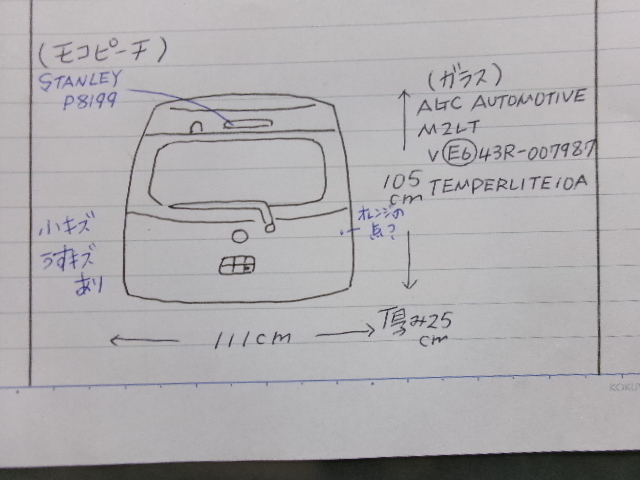 (モコピーチ)
STANLEY
P8199
(ガラス)
AGC AUTOMOTIVE
M2LT
V E6 43R-007987
TEMPERLITE10A
105
cm
オレンジの
点?
小キズ
うすキズ
あり
111cm
厚み25
cm
KOKUY